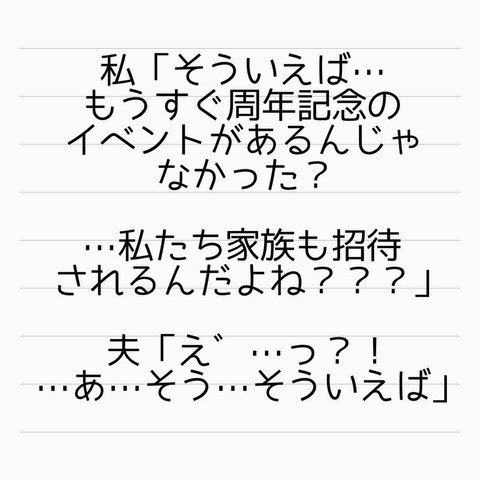 私「そういえば…
もうすぐ周年記念の
イベントがあるんじゃ
なかった?
…私たち家族も招待
されるんだよね???」
夫「え゛…っ?!
…あ…そう…そういえば」